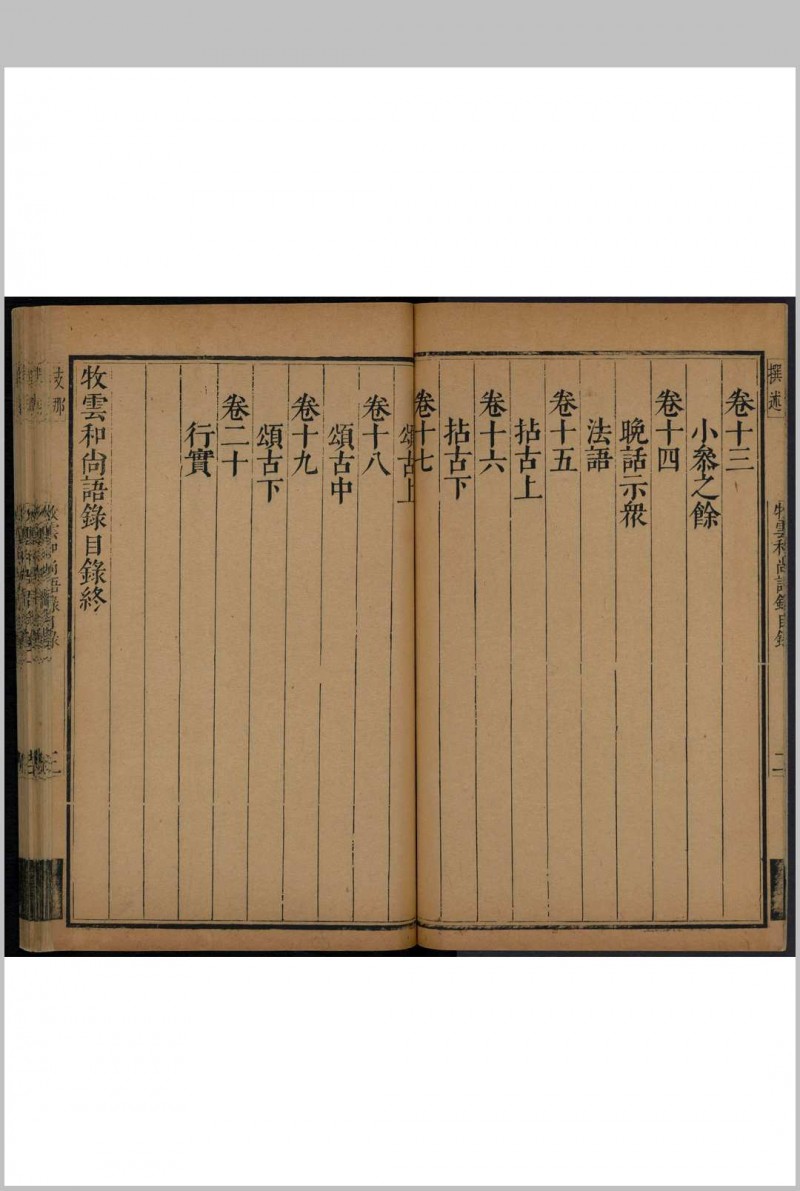 撰述
牧雲和尚語錄目錄
二
卷十三
小參之餘
卷十四
晚話示衆
法語
卷十五
拈古上
卷十六
拈古下
卷十七
頌古上
卷十八
頌古中
卷十九
頌古下
卷二十
行實
牧雲和尚語錄目錄終
支那
牧雲和尚語錄目錄